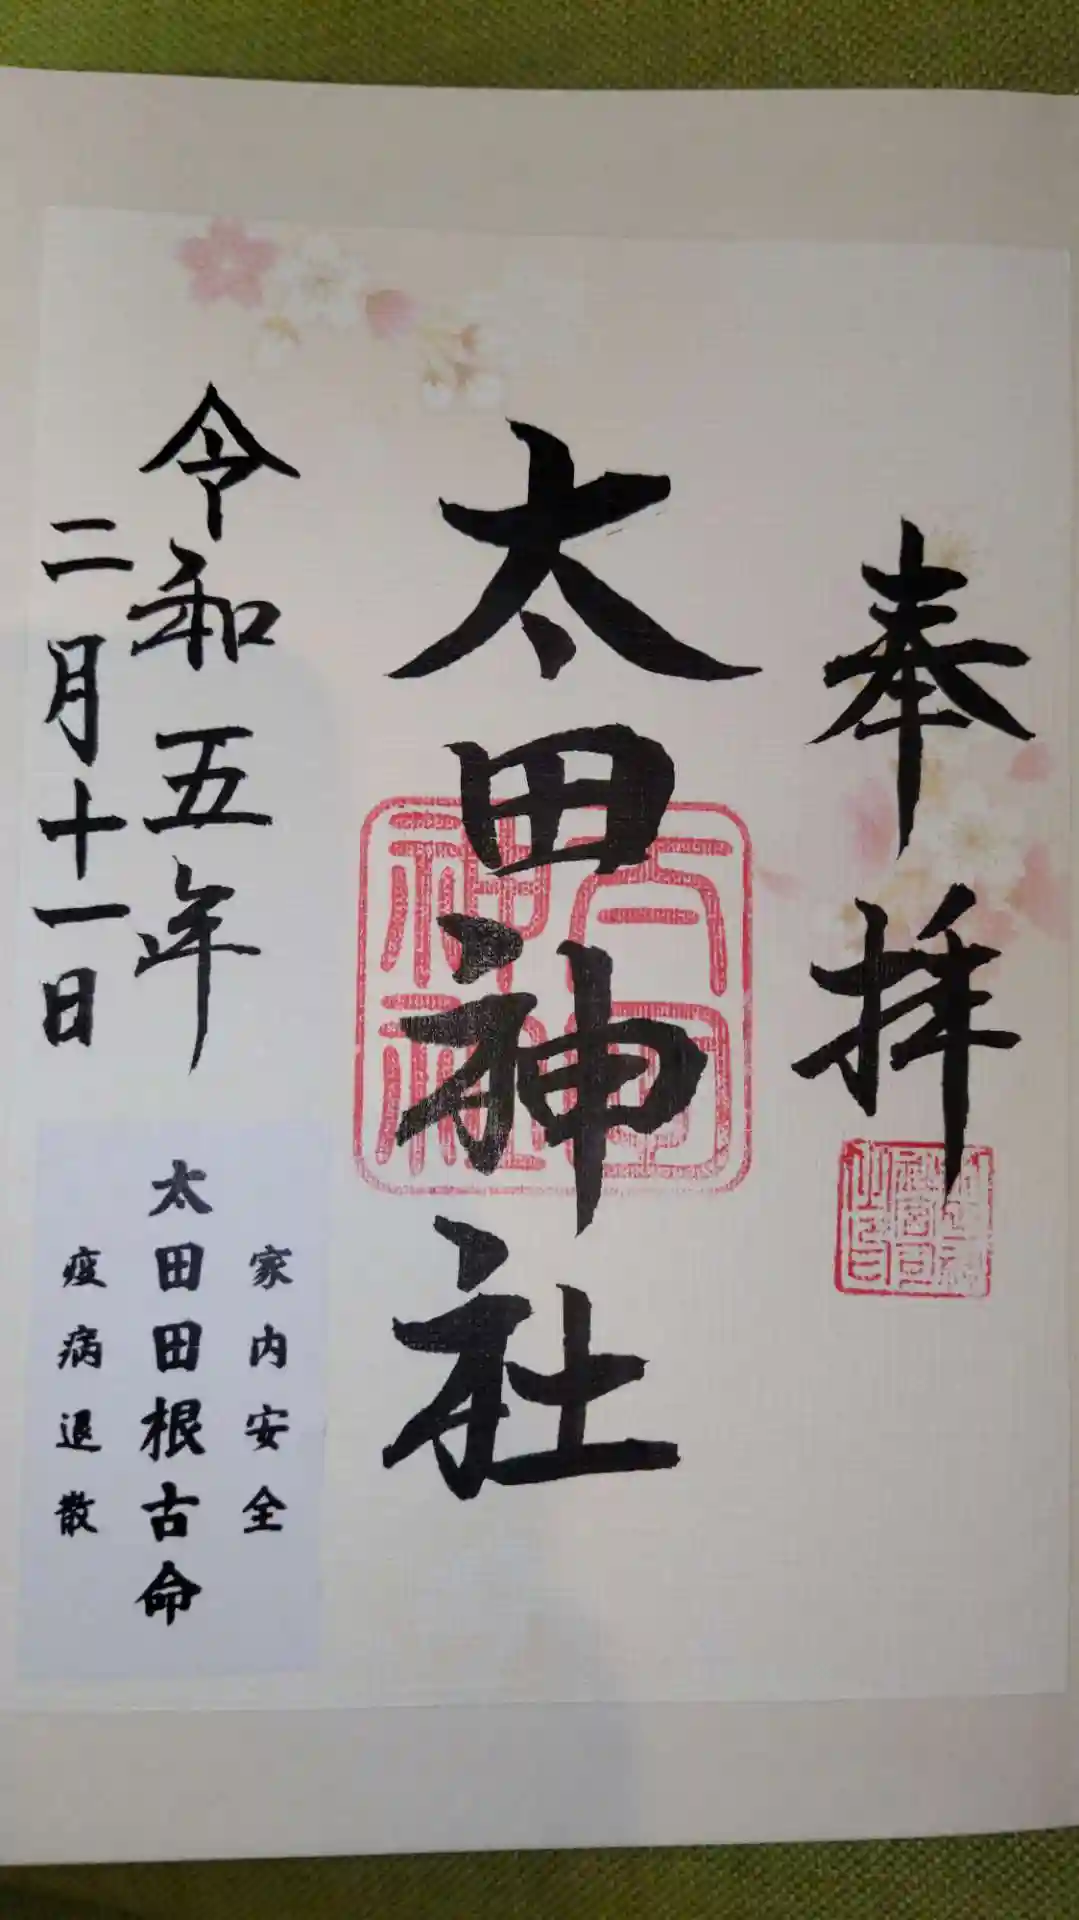 奉拝
太田神社
令和五年
二月十一日
家内安全
太田田根古命
疫病退散
太田
神社